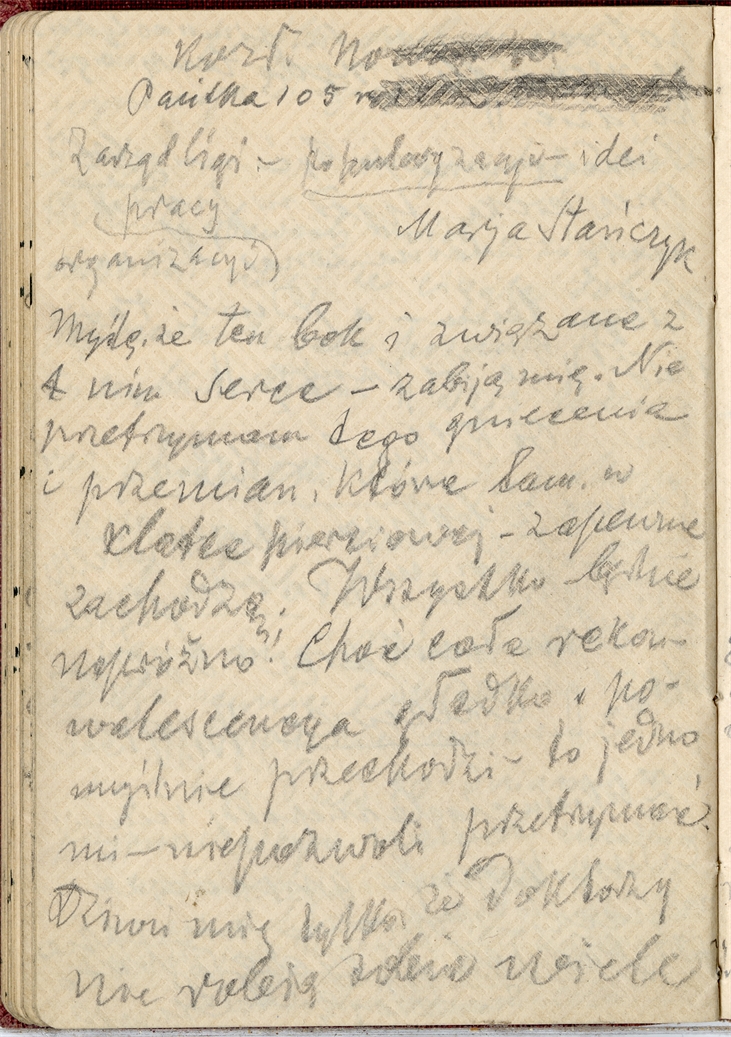 Pańska 105
Zarząd ligi – popularyzacyi – idei
pracy
Marja Stańczyk
organizacyi)
Myślę, że ten bok i związane z
z nim serce – zabiją mię. Nie
przetrzymam tego gniecenia
i przemian, które tam, w
klatce piersiowej – zapewne
zachodzą. Wszystko będzie
napróżno! Choć cała rekon-
walescencya gładko i po-
myślnie przechodzi – to jedno
mi – niepozwoli przetrzymać.
Dziwi mię tylko że doktorzy
nie robią sobie wiele